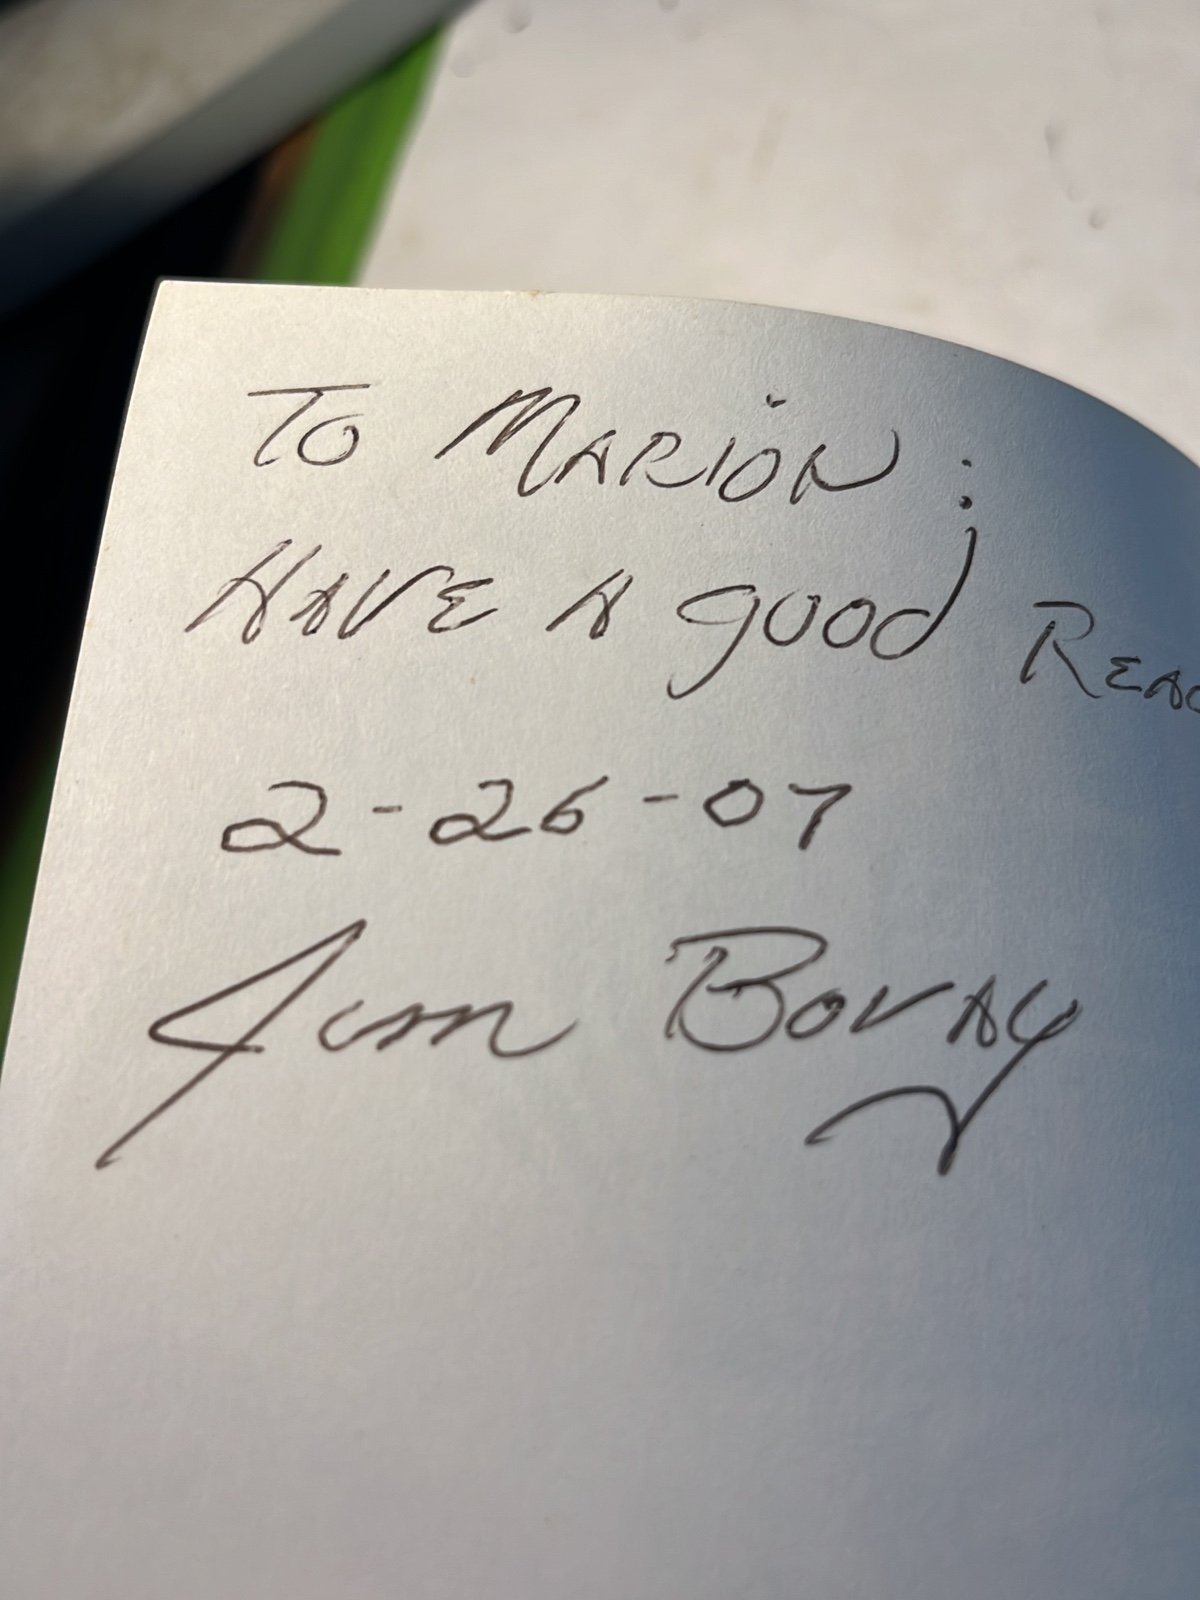 To MARION:
HAVE A good READ
2-26-07
Jim BOVAY